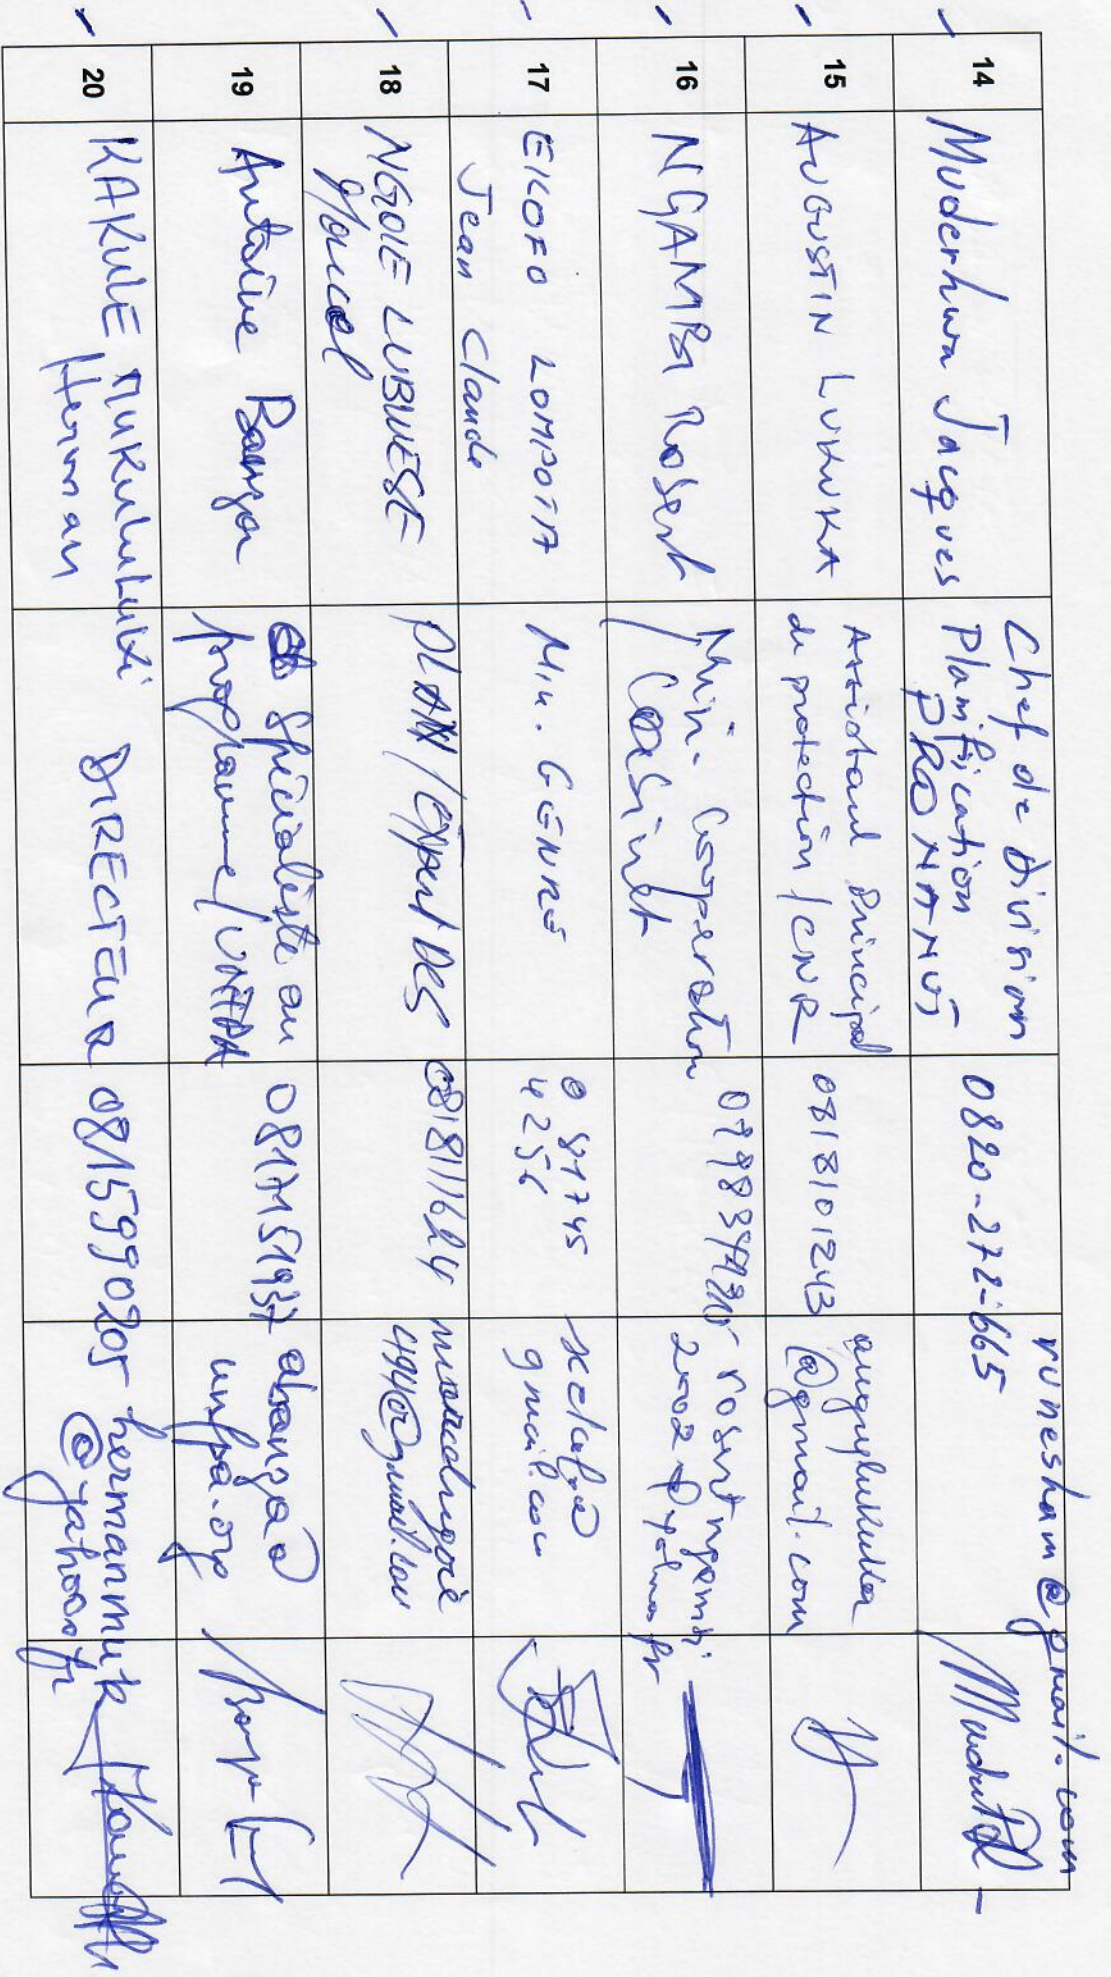 14
Muderhwa Jacques
Chef de Division
Planification
PRONANUT
0820-272-665
runesham@gmail.com
15
AUGUSTIN LUKUKA
Assistant Principal
de protection / CNR
0818101243
auguylukuka
@gmail.com
16
NGAMBI Robert
Min. Coopération
/ Cabinet
robertngambi
17
EKOFO LOMPOTA
Jean Claude
Min. GENRE
081745
4256
gmail.com
18
NGOIE LUBWESE
Marcel
PLAN / Expert DES
0818111624
marcelngoie
494@gmail.com
19
Antoine Banza
Spécialiste au
programme / UNFPA
abanza@
unfpa.org
20
KAKULE MUKULULUKI
Herman
DIRECTEUR
0815990205
hermanmuk
@yahoo.fr